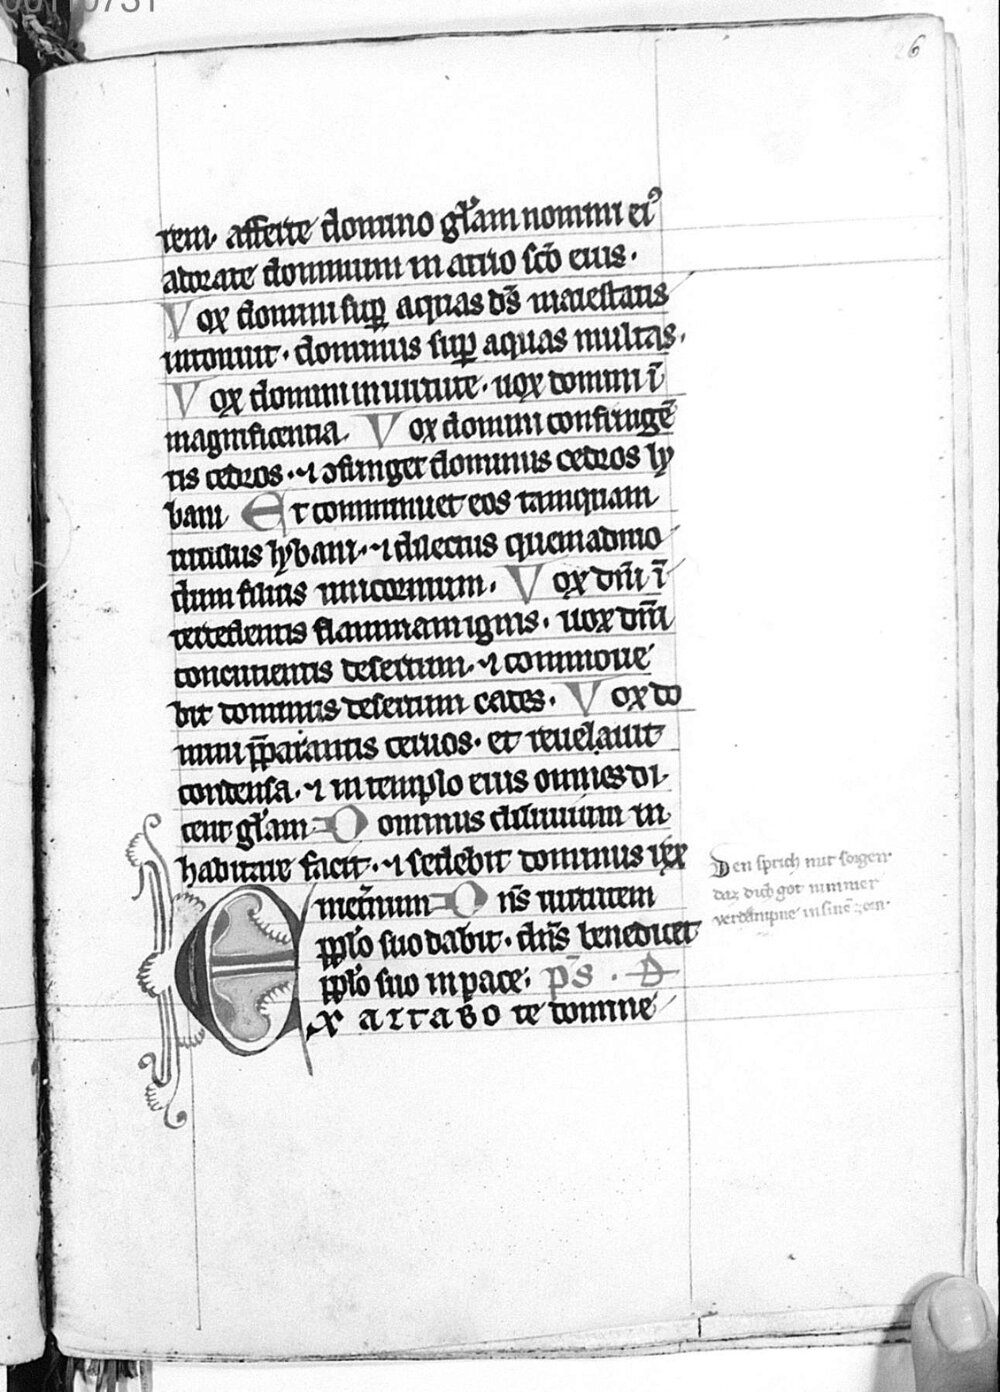 26
rem· afferte domino gl̄am nomini ei⁹
adorate dominum in atrio sc̄o eius·
Vox domini suꝑ aquas ds̄ maiestatis
intonuit· dominus suꝑ aquas multas·
Vox domini in uirtute· uox domini ī
magnificentia Vox domini confringē
tis cedros· ⁊ ↄfringet dominus cedros ly
bani Et comminuet eos tamquam
uitulus lybani· ⁊ dilectus quemadmo
dum filius unicornium· Vox dn̄i ī
tercedentis flammam ignis· uox dn̄i
concutientis desertum· ⁊ commoue
bit dominus desertum cades· Vox do
mini p̄parantis ceruos· et reuelauit
condensa· ⁊ in templo eius omnes di
cent gl̄am Dominus diluuium in
habitare facit· ⁊ sedebit dominus rex
in et̄num Dn̄s uirtutem
pp̄lo suo dabit· dn̄s benedicet
pp̄lo suo in pace; ps̄ · D
EXALTABO te domine
Den sprich nut sorgen·
daz dich got nimmer
verdampne in sinē zorn·